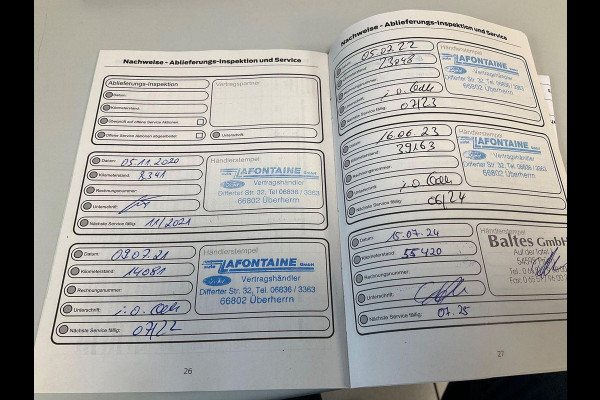 Nachweise - Ablieferungs-Inspektion und Service
Ablieferungs-Inspektion
Vertragspartner
Datum:
Kilometerstand:
Überprüft auf offene Service Aktionen:
Offene Service Aktionen abgearbeitet:
Unterschrift:
Datum: 05.11.2020
Händlerstempel
Kilometerstand: 8341
LAFONTAINE GmbH
Rechnungsnummer:
Vertragshändler
Differter Str. 32, Tel. 06836 / 3363
Unterschrift:
66802 Überherrn
Nächste Service fällig: 11/2021
Datum: 09.07.21
Händlerstempel
Kilometerstand: 14081
LAFONTAINE GmbH
Rechnungsnummer:
Vertragshändler
Differter Str. 32, Tel. 06836 / 3363
Unterschrift:
66802 Überherrn
Nächste Service fällig: 07/22
26
Nachweise - Ablieferungs-Inspektion und Service
05.07.22
Händlerstempel
23048
LAFONTAINE
Vertragshändler
Differter Str. 32, Tel. 06836 / 3363
66802 Überherrn
Service fällig: 07/23
Datum: 16.06.23
Händlerstempel
Kilometerstand: 39163
LAFONTAINE GmbH
Rechnungsnummer:
Vertragshändler
Differter Str. 32, Tel. 06836 / 3363
Unterschrift:
66802 Überherrn
Nächste Service fällig: 06/24
Datum: 15.07.24
Händlerstempel
Kilometerstand: 55420
Baltes GmbH
Rechnungsnummer:
Auf der
Unterschrift:
Nächste Service fällig: 07.25
27